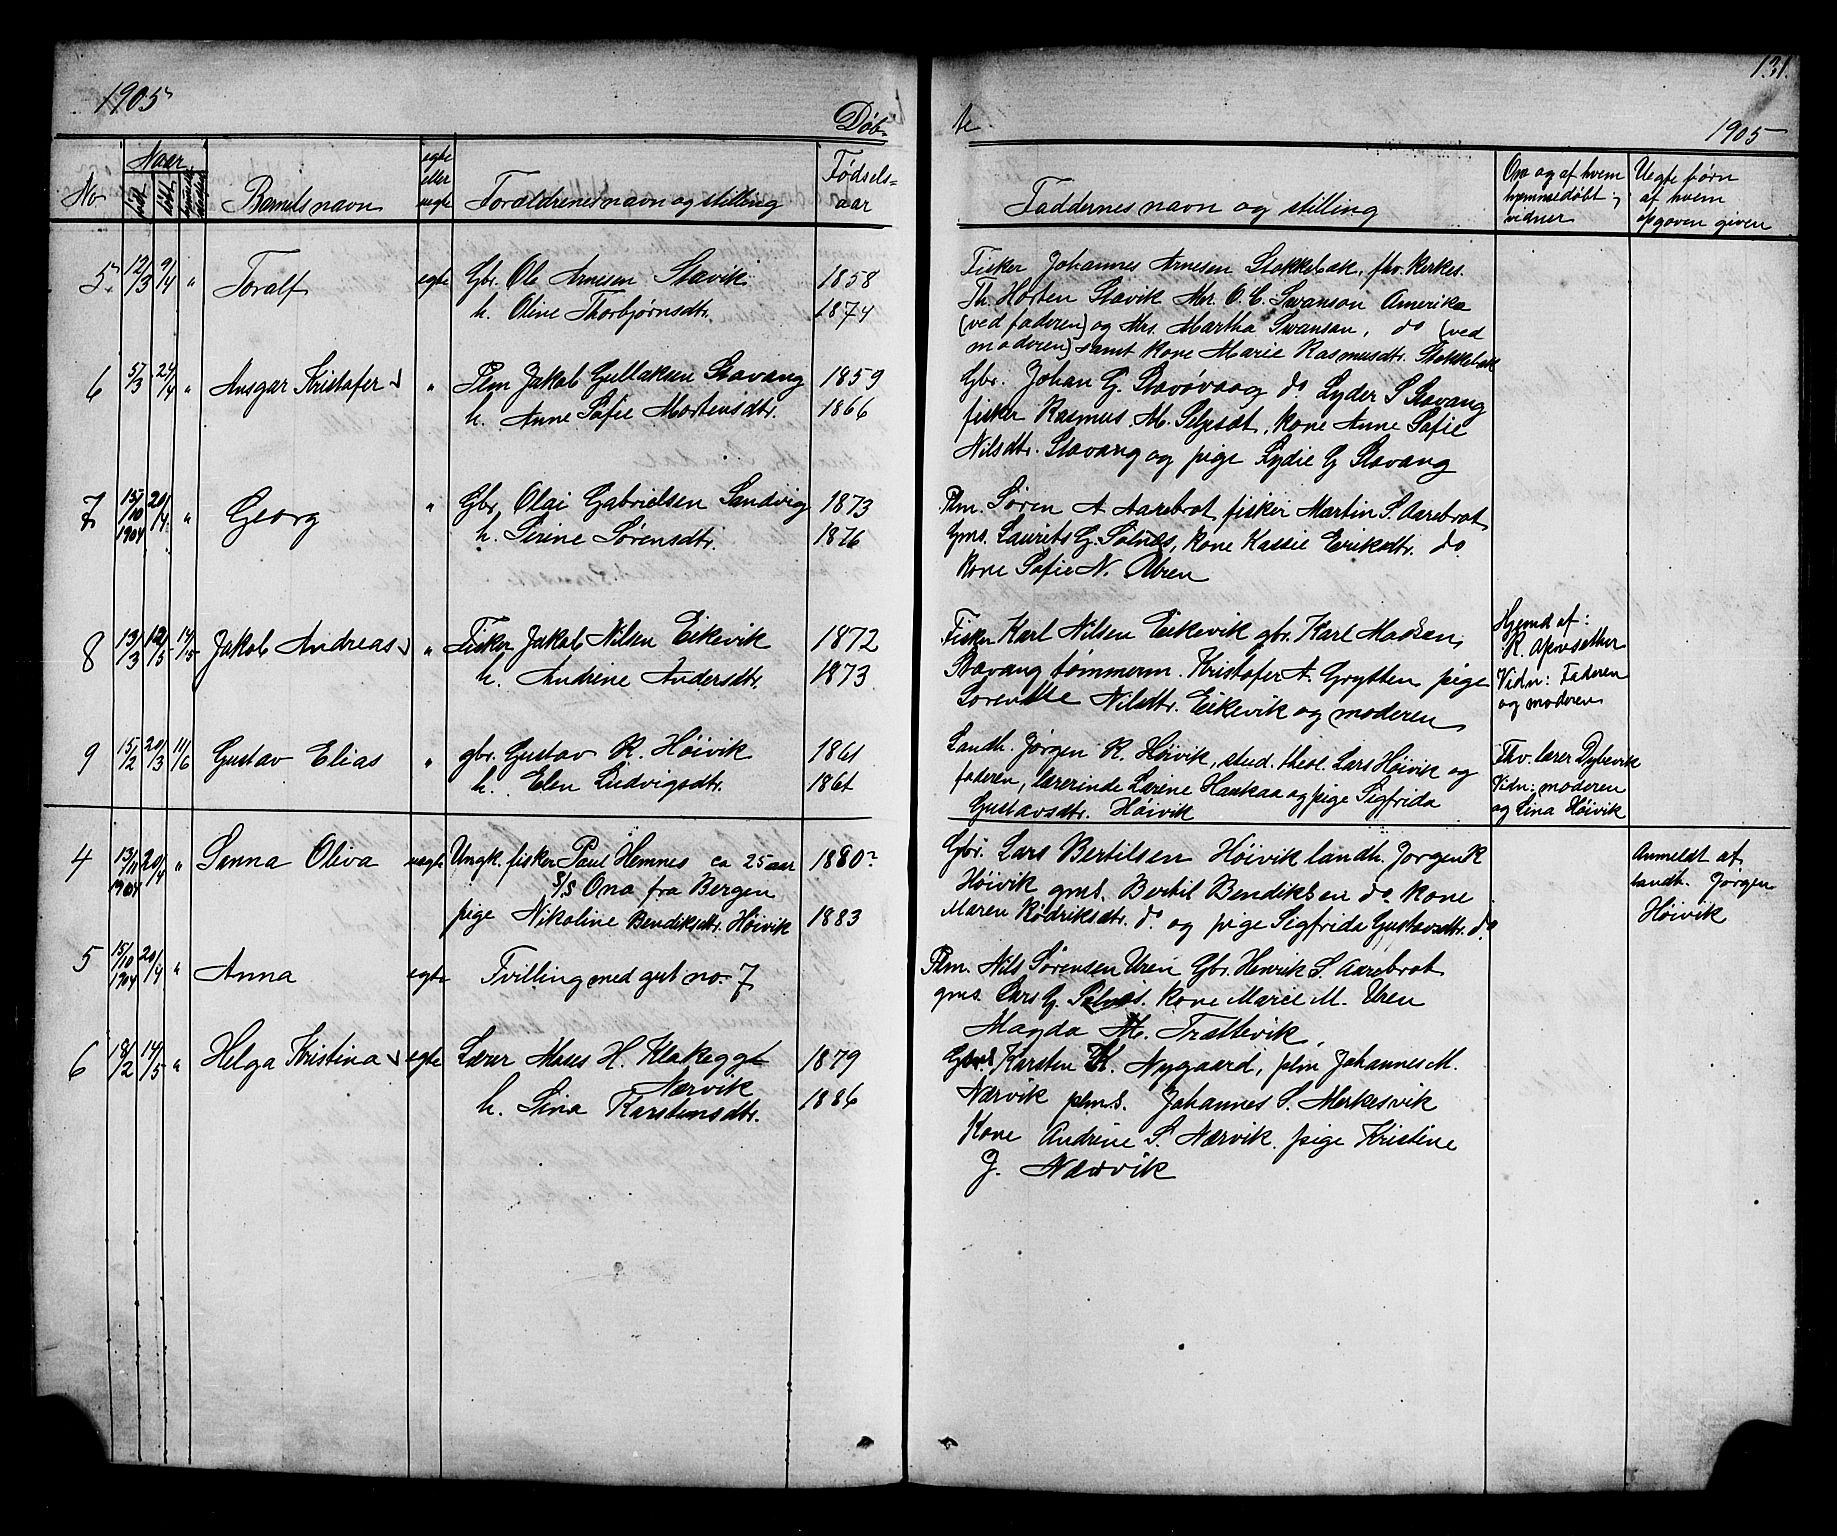 1905
Døb-
te
131.
1905
No
Naar
født
døbt
Barnets navn
egte
eller
uegte
Forældrenes navn og stilling
Fødsels-
aar
Faddernes navn og stilling
Om og af hvem
hjemmedøbt;
vidner
Uegte børn
af hvem
opgaven given
5. 12/3 9/4 " Toralf egte Gbr. Ole Arnesen Stavik 1858
h. Oline Thorbjørnsdtr. 1874
Fisker Johannes Arnesen Stokkebæk, fhv. kirkes.
Th. Horten Stavik Mr. O. C. Swanson Amerika
(ved faderen) og Mrs. Martha Swanson, do (ved
moderen) samt kone Marie Rasmusdtr. Stokkebæk
6 5/3 24/4 " Ansgar Kristofer " Plm Jakob Gullaksen Stavang 1859
h. Anne Sofie Mortensdtr. 1866
Gbr. Johan G. Stavøvaag do Lyder S Stavang
fisker Rasmus M. Seljesdt, kone Anne Sofie
Nilsdtr. Stavang og pige Lydie G Stavang
7 15/10 1904 20/4 " Georg " Gbr. Olai Gabrielsen Sandvig 1873
h. Sirine Sørensdtr. 1876
Plm. Søren A Aarebrot fisker Martin S. Aarebrot
Gms. Laurits G. Solnes, kone Kassie Eriksdtr. do
kone Sofie N. Uren
8 13/3 12/5 14/5 Jakob Andreas " Fisker Jakob Nilsen Eikevik 1872
h. Andrine Andersdtr. 1873
Fisker Karl Nilsen Eikevik gbr. Karl Madsen
Stavang tømmerm. Kristofer A. Grytten pige
Lorentse Nilsdtr. Eikevik og moderen
Hjemd af:
R.
Vidn: Faderen
og moderen
9 15/2 20/3 11/6 Gustav Elias " gbr. Gustav R. Høivik 1861
h. Elen Ludvigsdtr. 1861
Landh. Jørgen R. Høivik, stud. theol. Lars Høivik og
faderen, lærerinde Lærine Haukaa og pige Sigfrida
Gustavsdtr. Høivik
Fhv. lærer Dybevik
Vidn: moderen
og Lina Høivik
4 13/11 1904 20/4 " Sanna Oliva uegte Ungk. fisker Paul Hemnes ca 25 aar 1880?
S/S Ona fra Bergen
pige Nikoline Bendiksdtr. Høivik 1883
Gbr. Lars Bertilsen Høivik landh. Jørgen R
Høivik gms. Bertil Bendiksen do. kone
Maren Rødriksdtr. do og pige Sigfrida Gustavsdtr. do
Anmeldt af
landh. Jørgen
Høivik
5 15/10 1904 20/4 " Anna egte Tvilling med gut no. 7
Plm. Nils Sørensen Uren Gbr. Henrik S. Aarebrot
gms. Lars G. Solnes. kone Marie M. Uren
Magda M. Trættevik
6 18/2 14/5 " Helga Kristina egte Lærer Moses H. Klakegg 1879
Nærvik
h. Lina Karstensdtr. 1886
Gbr. Karsten K. Nygaard, plm Johannes M.
Nærvik plms. Johannes S. Merkesvik
Kone Andrine S. Nærvik. pige Kristine
J. Nærvik